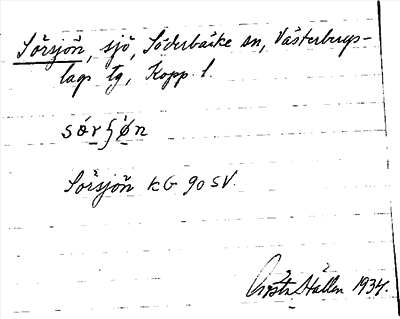 Sörsjön, sjö, Söderbärke sn, Västerbergs-
lags tg, Kopp. l.
Sörsjön KG 90 SV.
Hallen 1934.